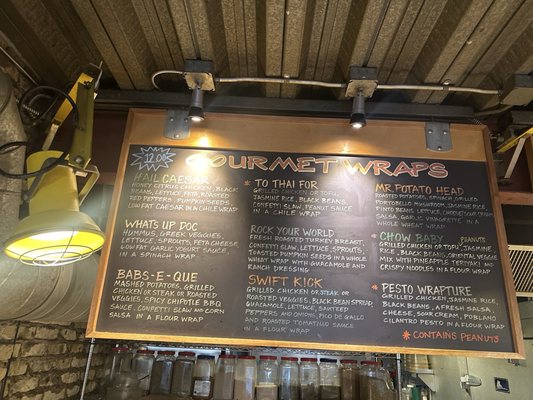 12.00
GOURMET WRAPS
HAIL CAESAR
HONEY CITRUS CHICKEN, BLACK
BEANS, LETTUCE, FETA, ROASTED
RED PEPPERS, PUMPKIN SEEDS,
LOW FAT CAESAR IN A CHILE WRAP
WHATS UP DOC
HUMMUS, GREEK VEGGIES,
LETTUCE, SPROUTS, FETA CHEESE,
LOW FAT YOGURT SAUCE
IN A SPINACH WRAP
BABS-E-QUE
MASHED POTATOES, GRILLED
CHICKEN OR STEAK OR ROASTED
VEGGIES, SPICY CHIPOTLE BBQ
SAUCE, CONFETTI SLAW AND CORN
SALSA IN A FLOUR WRAP
* TO THAI FOR
GRILLED CHICKEN OR TOFU,
JASMINE RICE, BLACK BEANS,
CONFETTI SLAW, PEANUT SAUCE
IN A CHILE WRAP
ROCK YOUR WORLD
FRESH ROASTED TURKEY BREAST,
CONFETTI SLAW, LETTUCE, SPROUTS,
TOASTED PUMPKIN SEEDS IN A WHOLE
WHEAT WRAP WITH GUACAMOLE AND
RANCH DRESSING
SWIFT KICK
GRILLED CHICKEN OR STEAK OR
ROASTED VEGGIES, BLACK BEAN SPREAD,
GUACAMOLE, LETTUCE, SAUTEED
PEPPERS AND ONIONS, PICO DE GALLO
AND ROASTED TOMATILLO SAUCE
IN A FLOUR WRAP
MR. POTATO HEAD
ROASTED POTATOES, SPINACH, GRILLED
PORTOBELLO MUSHROOMS, JASMINE RICE,
PINTO BEANS, LETTUCE, CHEESE, SOUR CREAM,
SALSA, GARLIC VINAIGRETTE IN A
WHOLE WHEAT WRAP
* CHOW BABY PEANUTS
GRILLED CHICKEN OR TOFU, JASMINE
RICE, BLACK BEANS, ORIENTAL VEGGIE
MIX WITH PINEAPPLE TERIYAKI AND
CRISPY NOODLES IN A FLOUR WRAP
* PESTO WRAPTURE
GRILLED CHICKEN, JASMINE RICE,
BLACK BEANS, FRESH SALSA,
CHEESE, SOUR CREAM, POBLANO
CILANTRO PESTO IN A FLOUR WRAP
* CONTAINS PEANUTS